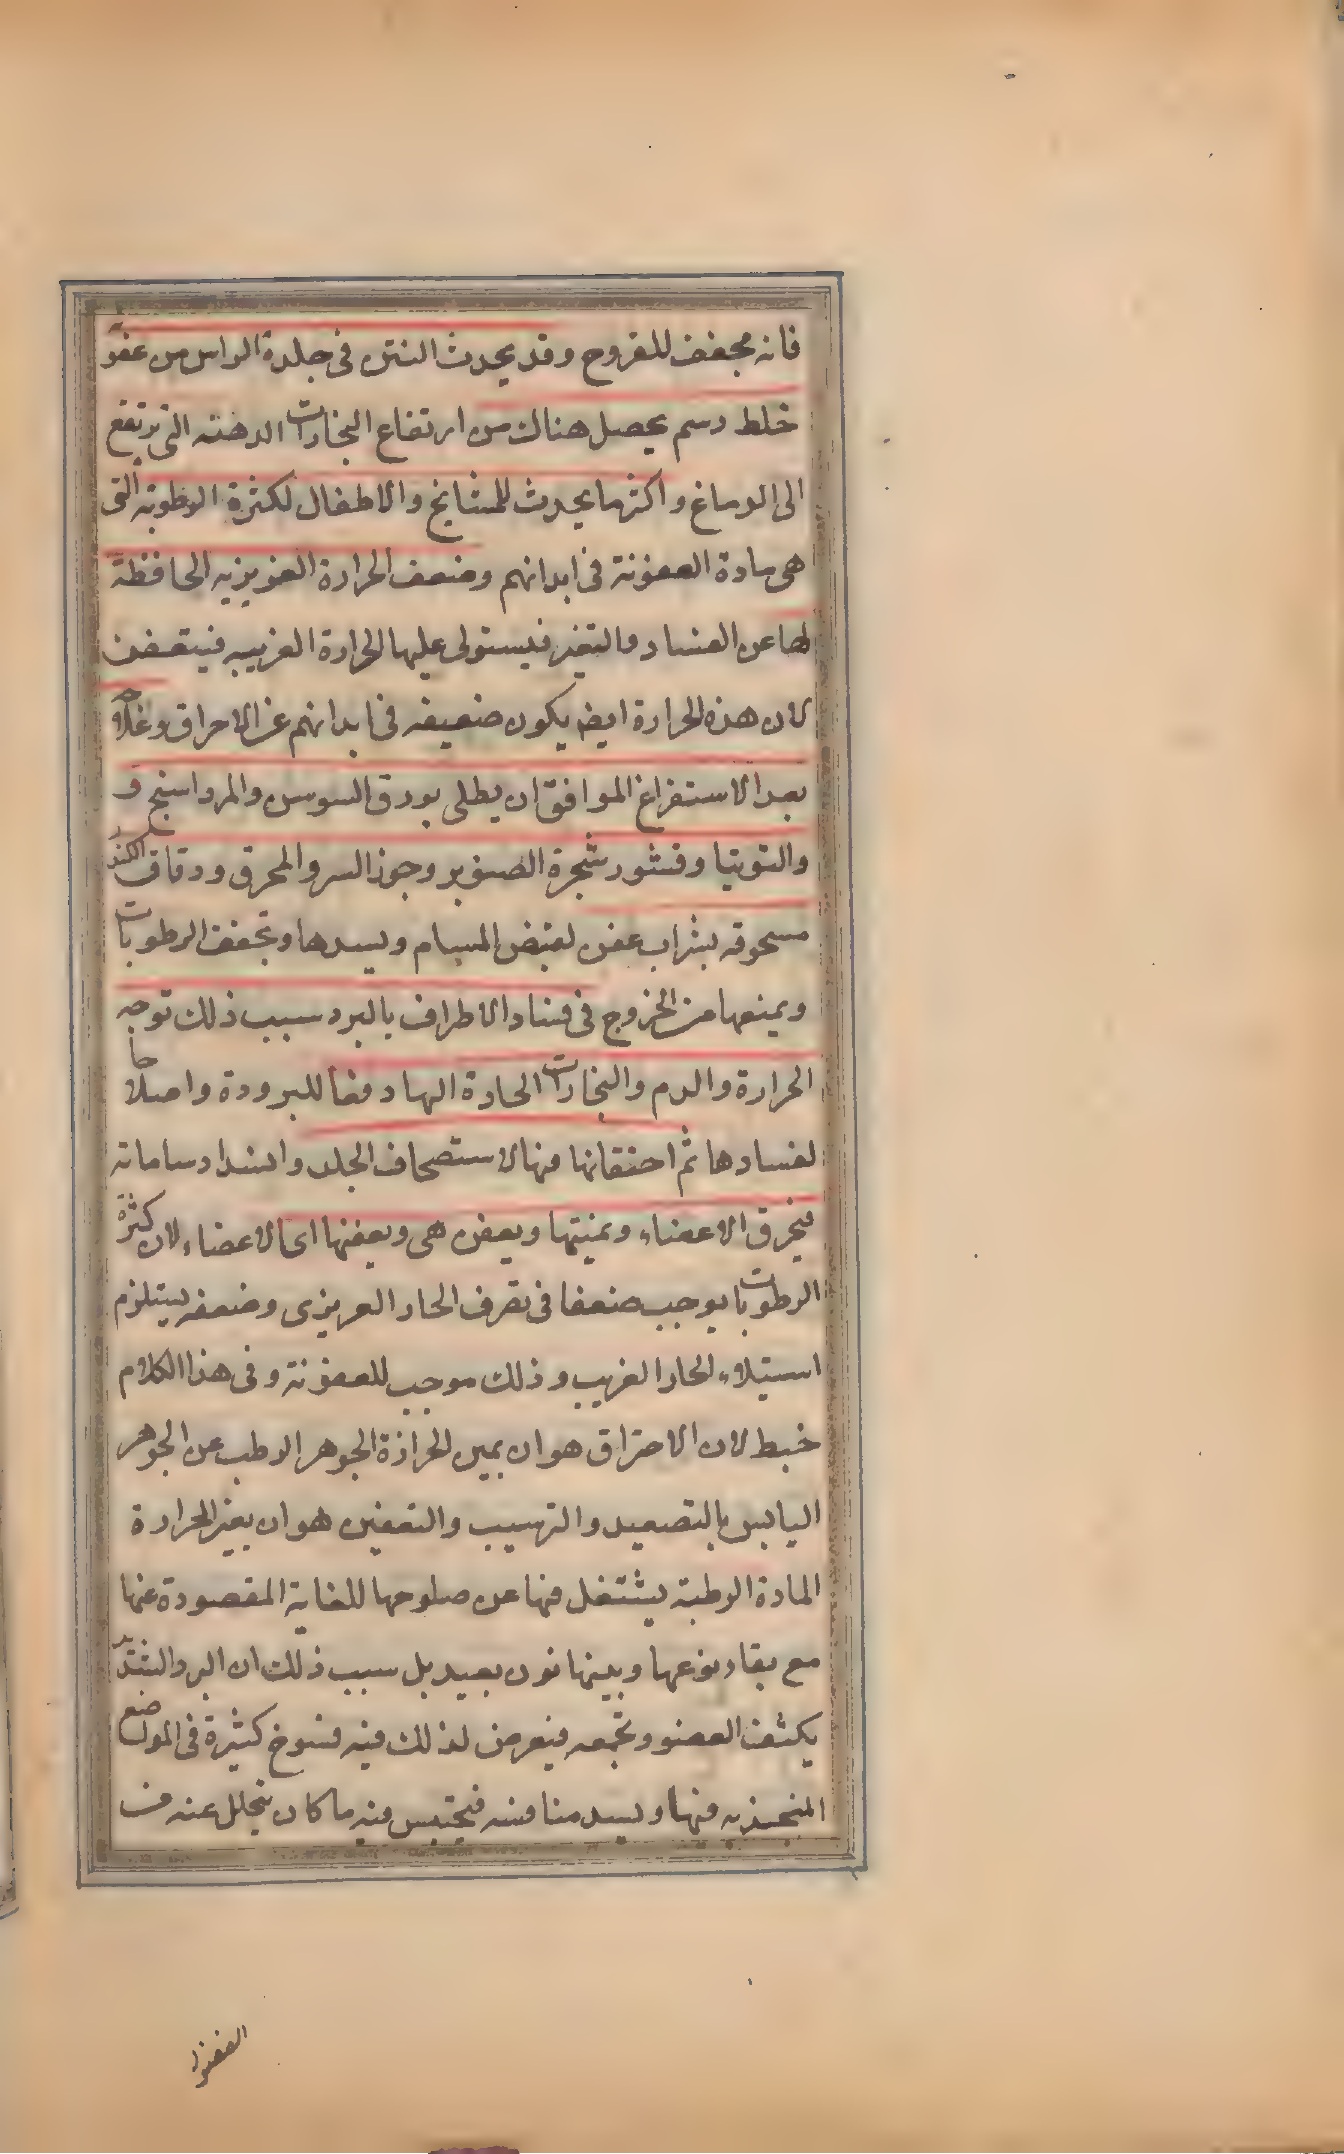 فانه مجفف للقروح وقد يحدث النتن فى جلدة الراس من عفونة
خلط دسم يحصل هناك من ارتفاع البخارات الدهنه التى يرتفع
الى الدماغ واكثر ما يحدث للمشايخ والاطفال لكثرة الرطوبة التى
هى مادة العفونة فى ابدانهم وضعف الحرارة الغريزيه الحافظة
لها عن الفساد والتغير فيستولى عليها الحرارة الغريبه فيتعفن
لان هذه الحرارة ايضا يكون ضعيفه فى ابدانهم عن الاحراق وعلاجه
بعد الاستفراغ الموافق ان يطلى بورق السوسن والمرداسنج و
والتوتيا وقشور شجرة الصنوبر وجوز السرو المحرق ودقاق الكندر
مسحوقه بشراب عفص لقبض المسام ويسدها وتجفف الرطوبات
ويمنعها من الخروج فى فساد الاطراف بالبرد سبب ذلك توجه
الحرارة والدم والبخارات الحادة الهادفعا للبرودة واصلاحا
لفسادها ثم احتقانها فيها لاستصحاف الجلد وانسداد مساماته
فيحرق الاعضاء ويميتها ويعفن هى ويعفنها اى الاعضاء لان كثرة
الرطوبات يوجب ضعفا فى تصرف الحار الغريزى وضعفه يستلزم
استيلاء الحار الغريب وذلك موجب للعفونة وفى هذا الكلام
خبط لان الاحتراق هو ان يميز الحرارة الجوهر الرطب عن الجوهر
اليابس بالتصعيد والترسيب والتعفين هو ان يغير الحرارة
المادة الرطبة يشتعل فيها عن صلوحها للغاية المقصودة عنها
مع بقاء نوعها وبينها بون بعيد بل سبب ذلك ان البرد الشديد
يكثف العضو وتجمعه فيعرض لذلك فيه فسوخ كثيرة فى المواضع
المنجذبه فيها ويسد منافسه فيحتبس فيه ما كان يتحلل عنه من